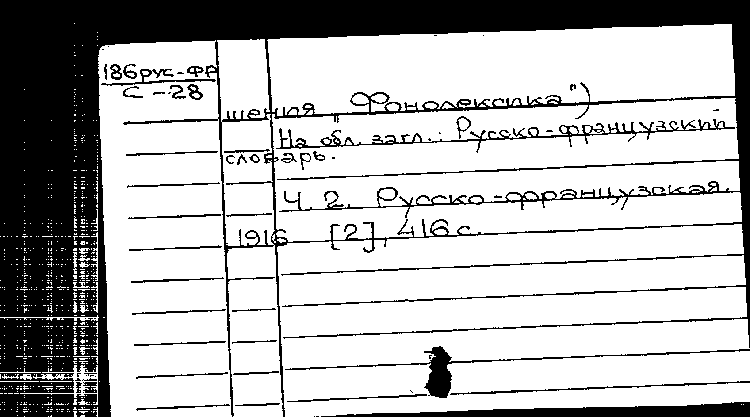 186рус-фр
С-28
шения „Фонолексика")
На обл. загл.: Русско-французский
словарь.
Ч. 2. Русско-французская.
1916 [2], 416 с.